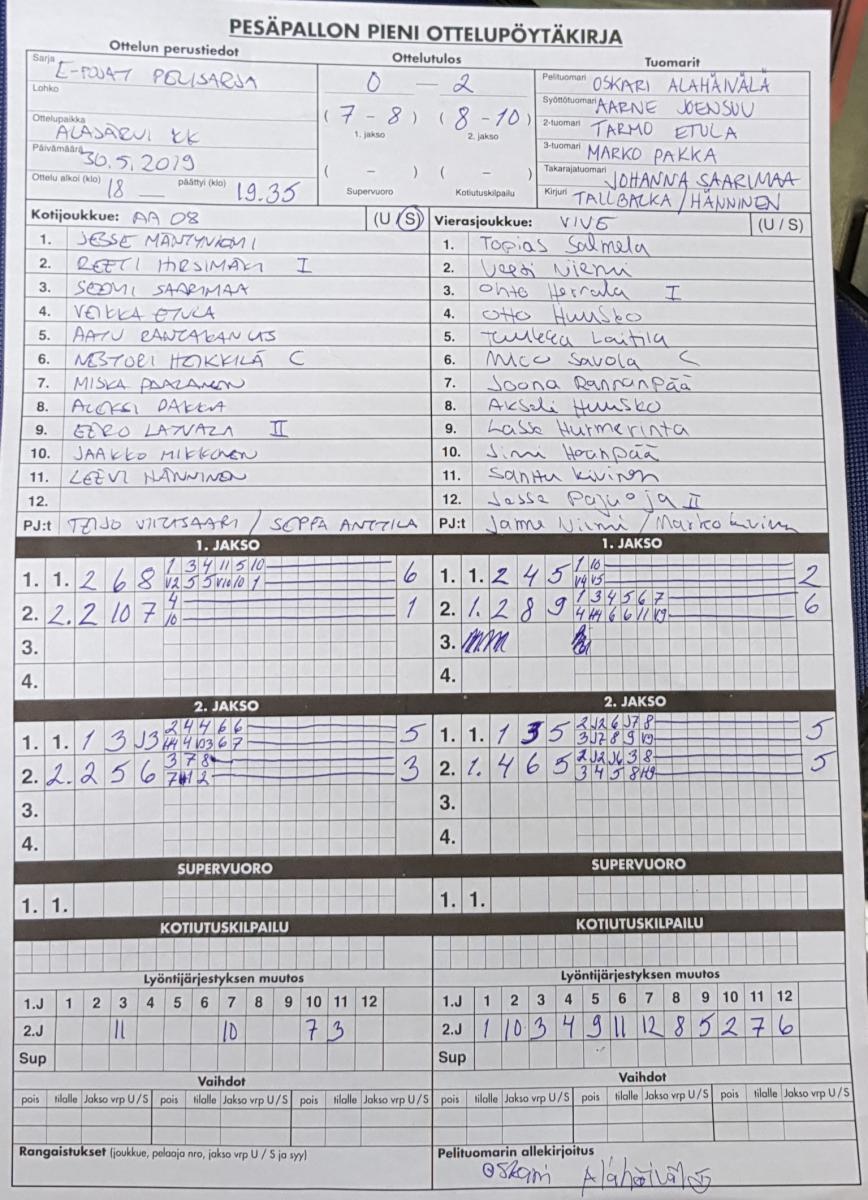 PESÄPALLON PIENI OTTELUPÖYTÄKIRJA
Ottelun perustiedot Ottelutulos Tuomarit
Sarja E-POJAT PELISARJA
Lohko
Ottelupaikka ALAJÄRVI KK
Päivämäärä 30.5.2019
Ottelu alkoi (klo) 18 päättyi (klo) 19.35
0 - 2
( 7 - 8 ) ( 8 - 10 )
1. jakso 2. jakso
( - ) ( - )
Supervuoro Kotiutuskilpailu
Pelituomari OSKARI ALAHÄIVÄLÄ
Syöttötuomari AARNE JOENSUU
2-tuomari TARMO ETULA
3-tuomari MARKO PAKKA
Takarajatuomari JOHANNA SAARIMAA
Kirjuri TALLBACKA / HÄNNINEN
Kotijoukkue: AA 08 (U / S)
1. JESSE MÄNTYNIEMI
2. REETI HIRSIMÄKI I
3. SEEMI SAARIMAA
4. VEIKKA ETULA
5. AATU RANTAKANGAS
6. NESTORI HEIKKILÄ C
7. MISKA PAALANEN
8. ALEKSI PAKKA
9. EERO LATVALA II
10. JAAKKO MIKKONEN
11. LEEVI HÄNNINEN
12.
PJ:t TEIJO VIITASAARI / SEPPÄ ANTTILA
Vierasjoukkue: VIVE (U / S)
1. Topias Salmela
2. Veeti Niemi
3. Ohto Herrala I
4. Otto Huusko
5. Tuukka Laitila
6. Nico Savola C
7. Joona Rannanpää
8. Akseli Huusko
9. Lasse Hurmerinta
10. Jimi Haanpää
11. Santtu Kivinen
12. Jesse Pajuoja II
PJ:t Janne Niemi / Marko Kivinen
1. JAKSO
1. 1. 2 6 8 1 3 4 11 5 10 6
V2 5 5 V10 10 1
2. 2. 2 10 7 4 1
10
3.
4.
1. JAKSO
1. 1. 2 4 5 1 10 2
V4 V5
2. 1. 2 8 9 1 3 4 5 6 7 6
4 H4 6 6 11 V9
3.
4.
2. JAKSO
1. 1. 1 3 J3 2 4 4 6 6 5
H4 4 V3 6 7
2. 2. 2 5 6 3 7 8 3
3.
4.
2. JAKSO
1. 1. 1 3 5 2 J2 6 J7 8 5
3 J7 8 9 V9
2. 1. 4 6 5 2 J2 J6 3 8 5
3 4 5 8 H9
3.
4.
SUPERVUORO SUPERVUORO
1. 1. 1. 1.
KOTIUTUSKILPAILU KOTIUTUSKILPAILU
Lyöntijärjestyksen muutos
1.J 1 2 3 4 5 6 7 8 9 10 11 12
2.J 11 10 7 3
Sup
Lyöntijärjestyksen muutos
1.J 1 2 3 4 5 6 7 8 9 10 11 12
2.J 1 10 3 4 9 11 12 8 5 2 7 6
Sup
Vaihdot Vaihdot
pois tilalle Jakso vrp U / S pois tilalle Jakso vrp U / S pois tilalle Jakso vrp U / S
pois tilalle Jakso vrp U / S pois tilalle Jakso vrp U / S pois tilalle Jakso vrp U / S
Rangaistukset (joukkue, pelaaja nro, jakso vrp U / S ja syy)
Pelituomarin allekirjoitus
Oskari Alahäivälä